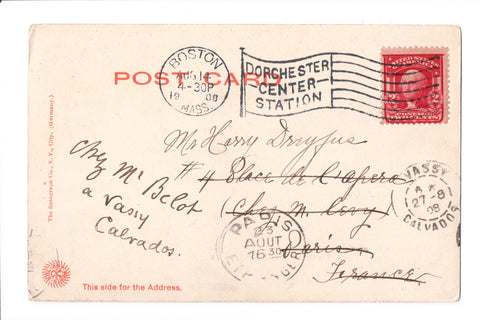 POST CARD
BOSTON
AUG 14
4-30P
19 08
MASS.
DORCHESTER
CENTER
STATION
Mr Harry Dreyfus
# 4 Place de l'Opera
(Chez M. Levy)
Paris
France
Chez Mr Belot
a Vassy
Calvados.
PARIS
23
AOUT
16 30
ETRANGER
VASSY
27-8
08
CALVADOS
The Rotograph Co., N.Y. City. (Germany.)
This side for the Address.